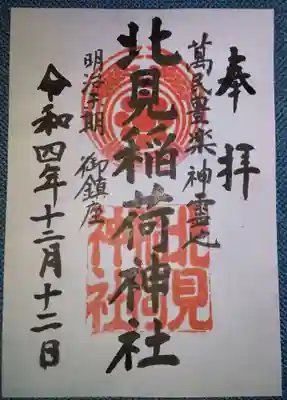 奉拝
萬民豊楽神霊之
北見稲荷神社
明治期 御鎮座
令和四年十二月十二日
北見
稲荷
神社